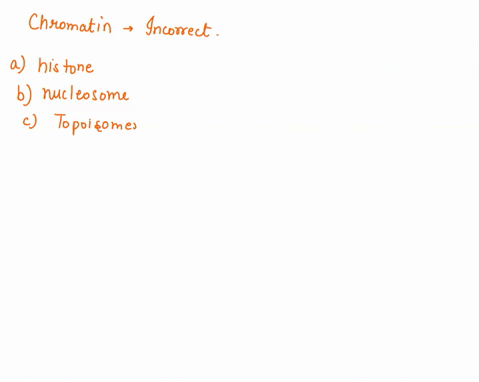 Chromatin → Incorrect.
a) histone
b) nucleosome
c) Topoisomes